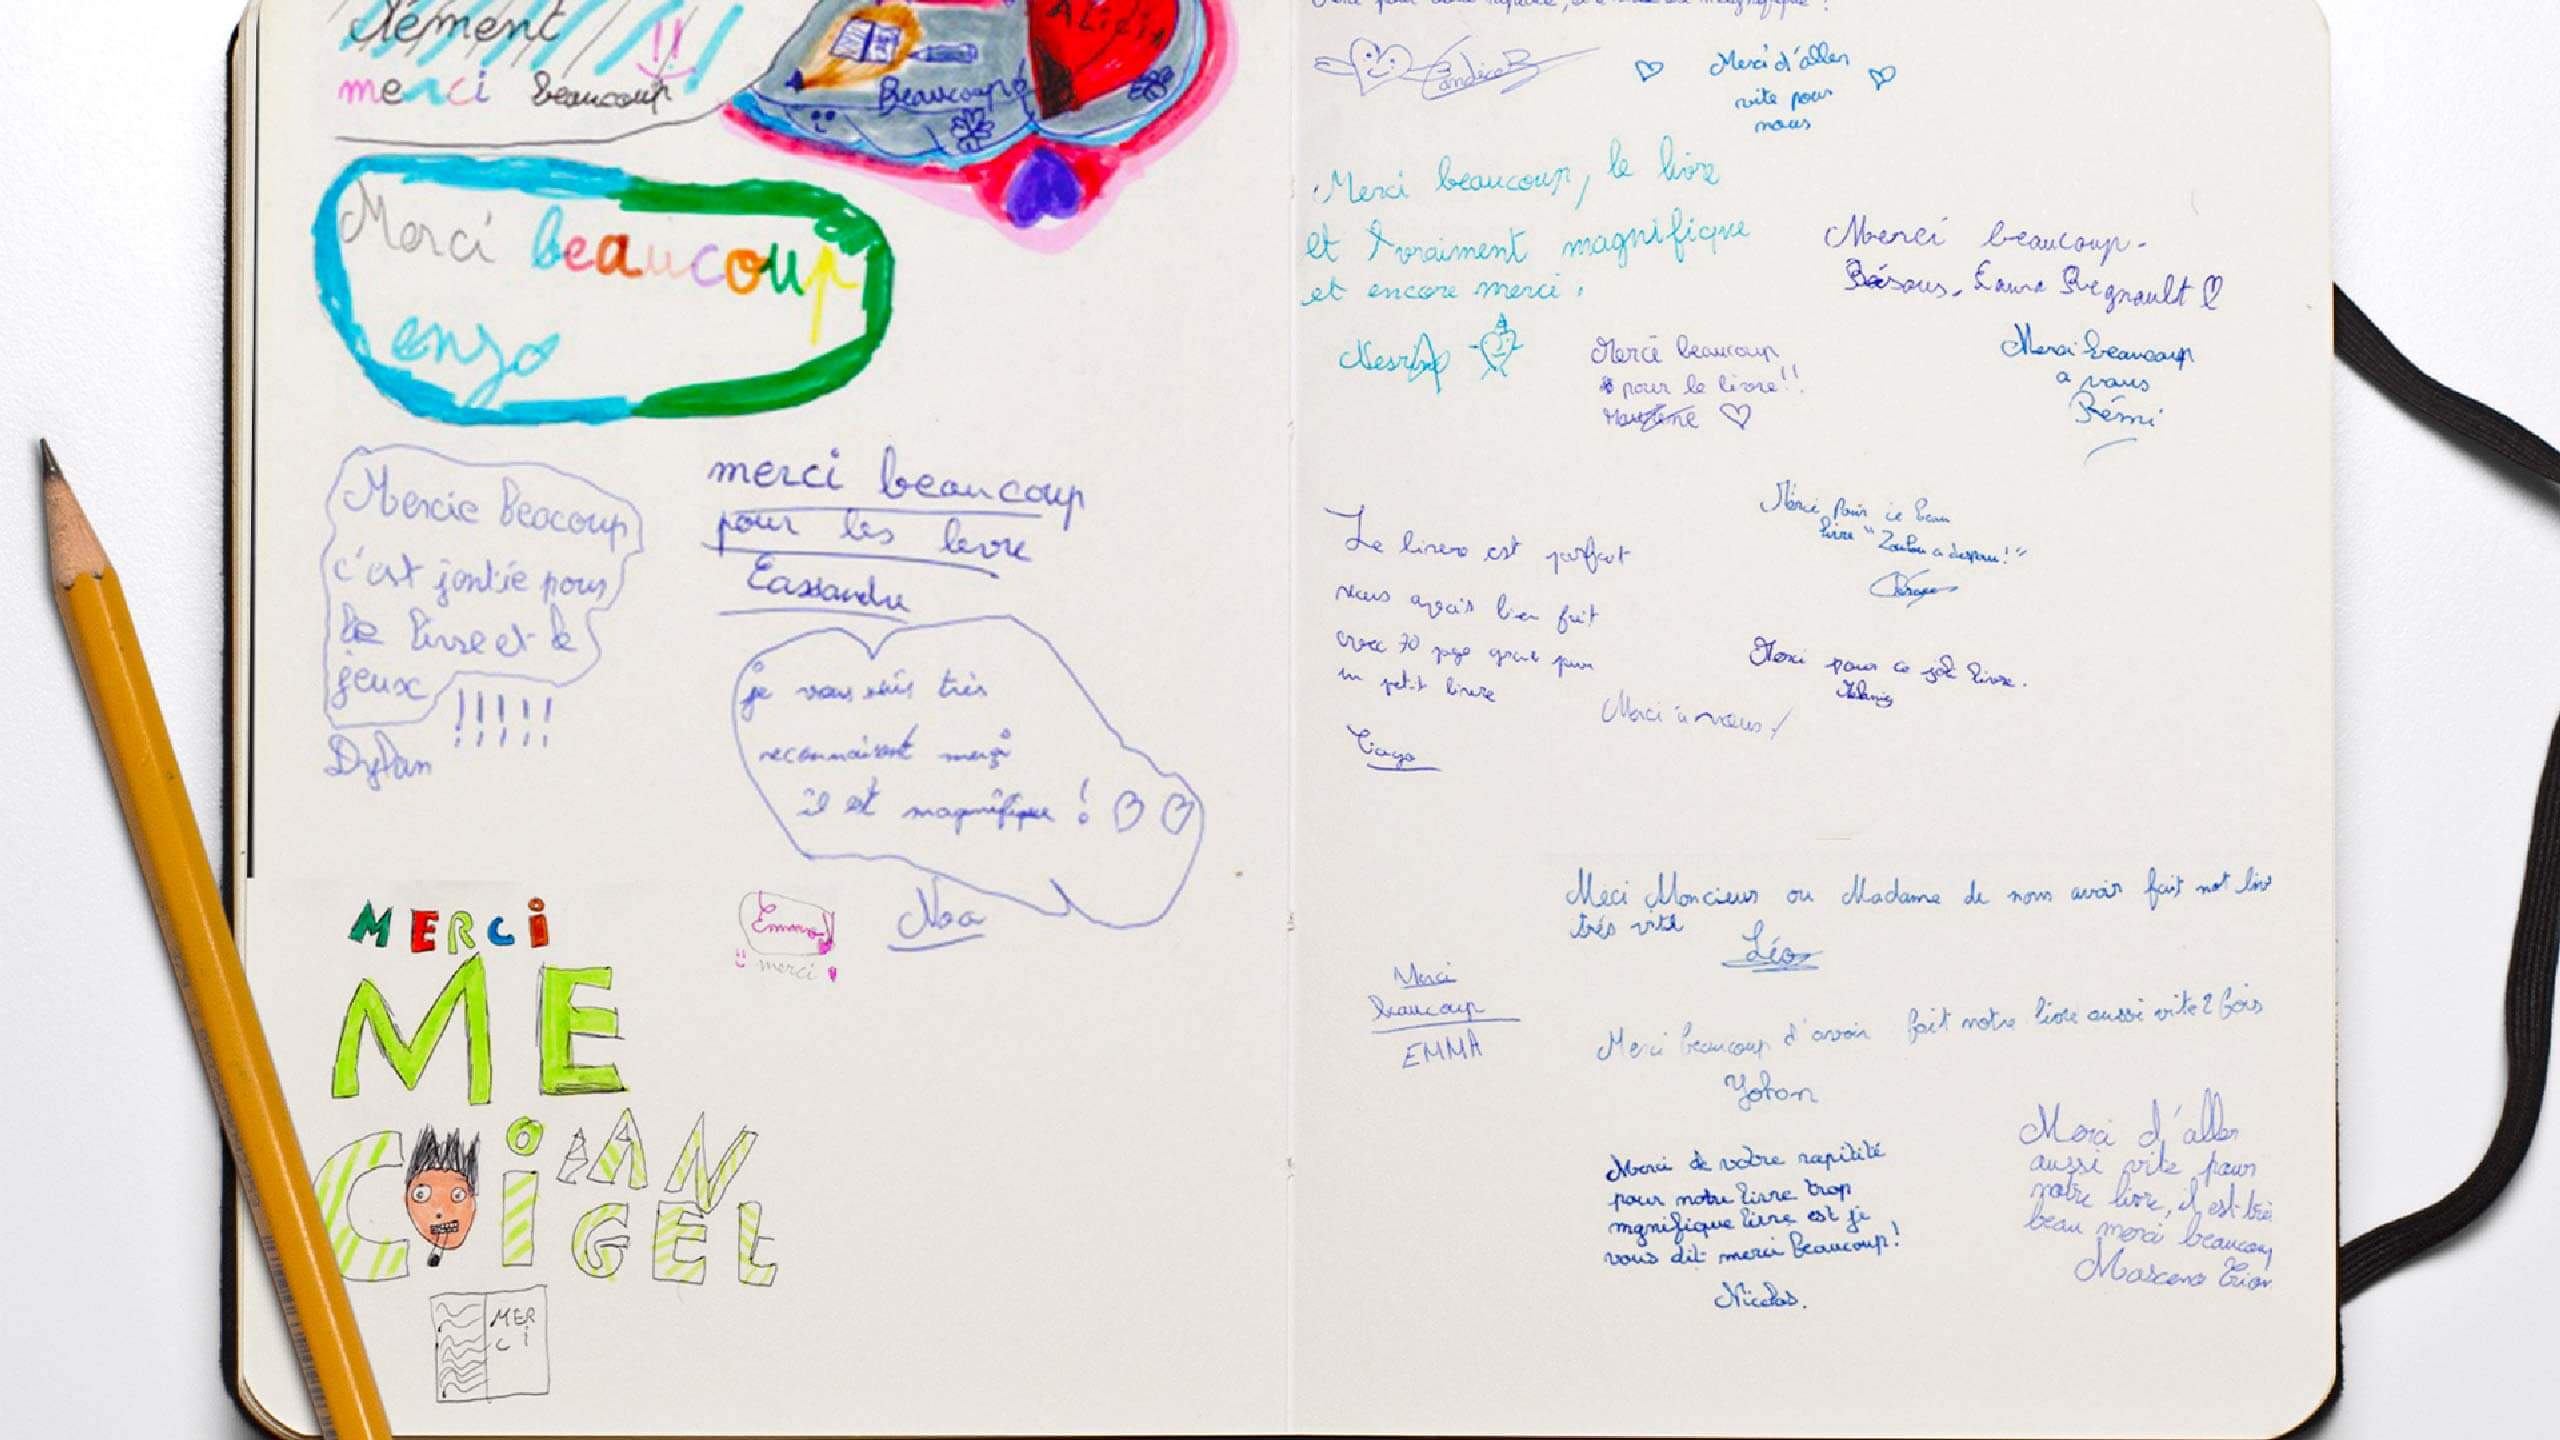 Clément
merci beaucoup
Beaucoup
ALiciA
Merci beaucoup
enzo
Mercie beocoup
c'est jentie pour
le livre et le
jeux
!!!!!
Dylan
merci beaucoup
pour les levre
Cassandre
je vous suis très
reconnaisent merçi
il est magnifique !
Noa
MERCi
Emma
merci
ME
C i
EAN
GEL
MER
C i
Merci d'aller
vite pour
nous
Merci beaucoup, le livre
et vraiment magnifique
et encore merci.
Merci beaucoup.
Bisous, Laura Regnault
Merci beaucoup
pour le livre!!
Merci beaucoup
a vous
Rémi
Merci pour ce beau
livre "
Le livere est parfait
vous avais bien fait
avec 70 page pour
un petit livre
Tiago
Merci pour ce joli livre.
Merci à vous!
Meci Moncieur ou Madame de nous avoir fait not livr
trés vite
Léo
Merci
beaucoup
EMMA
Merci beaucoup d'avoir fait notre livre aussi vite 2 fois
Yohan
Merci de votre rapitité
pour notre livre trop
mgnifique livre est je
vous dit merci beaucoup!
Nicolas.
Merci d'aller
aussi vite pour
notre livre, il est trè
beau merci beaucoup